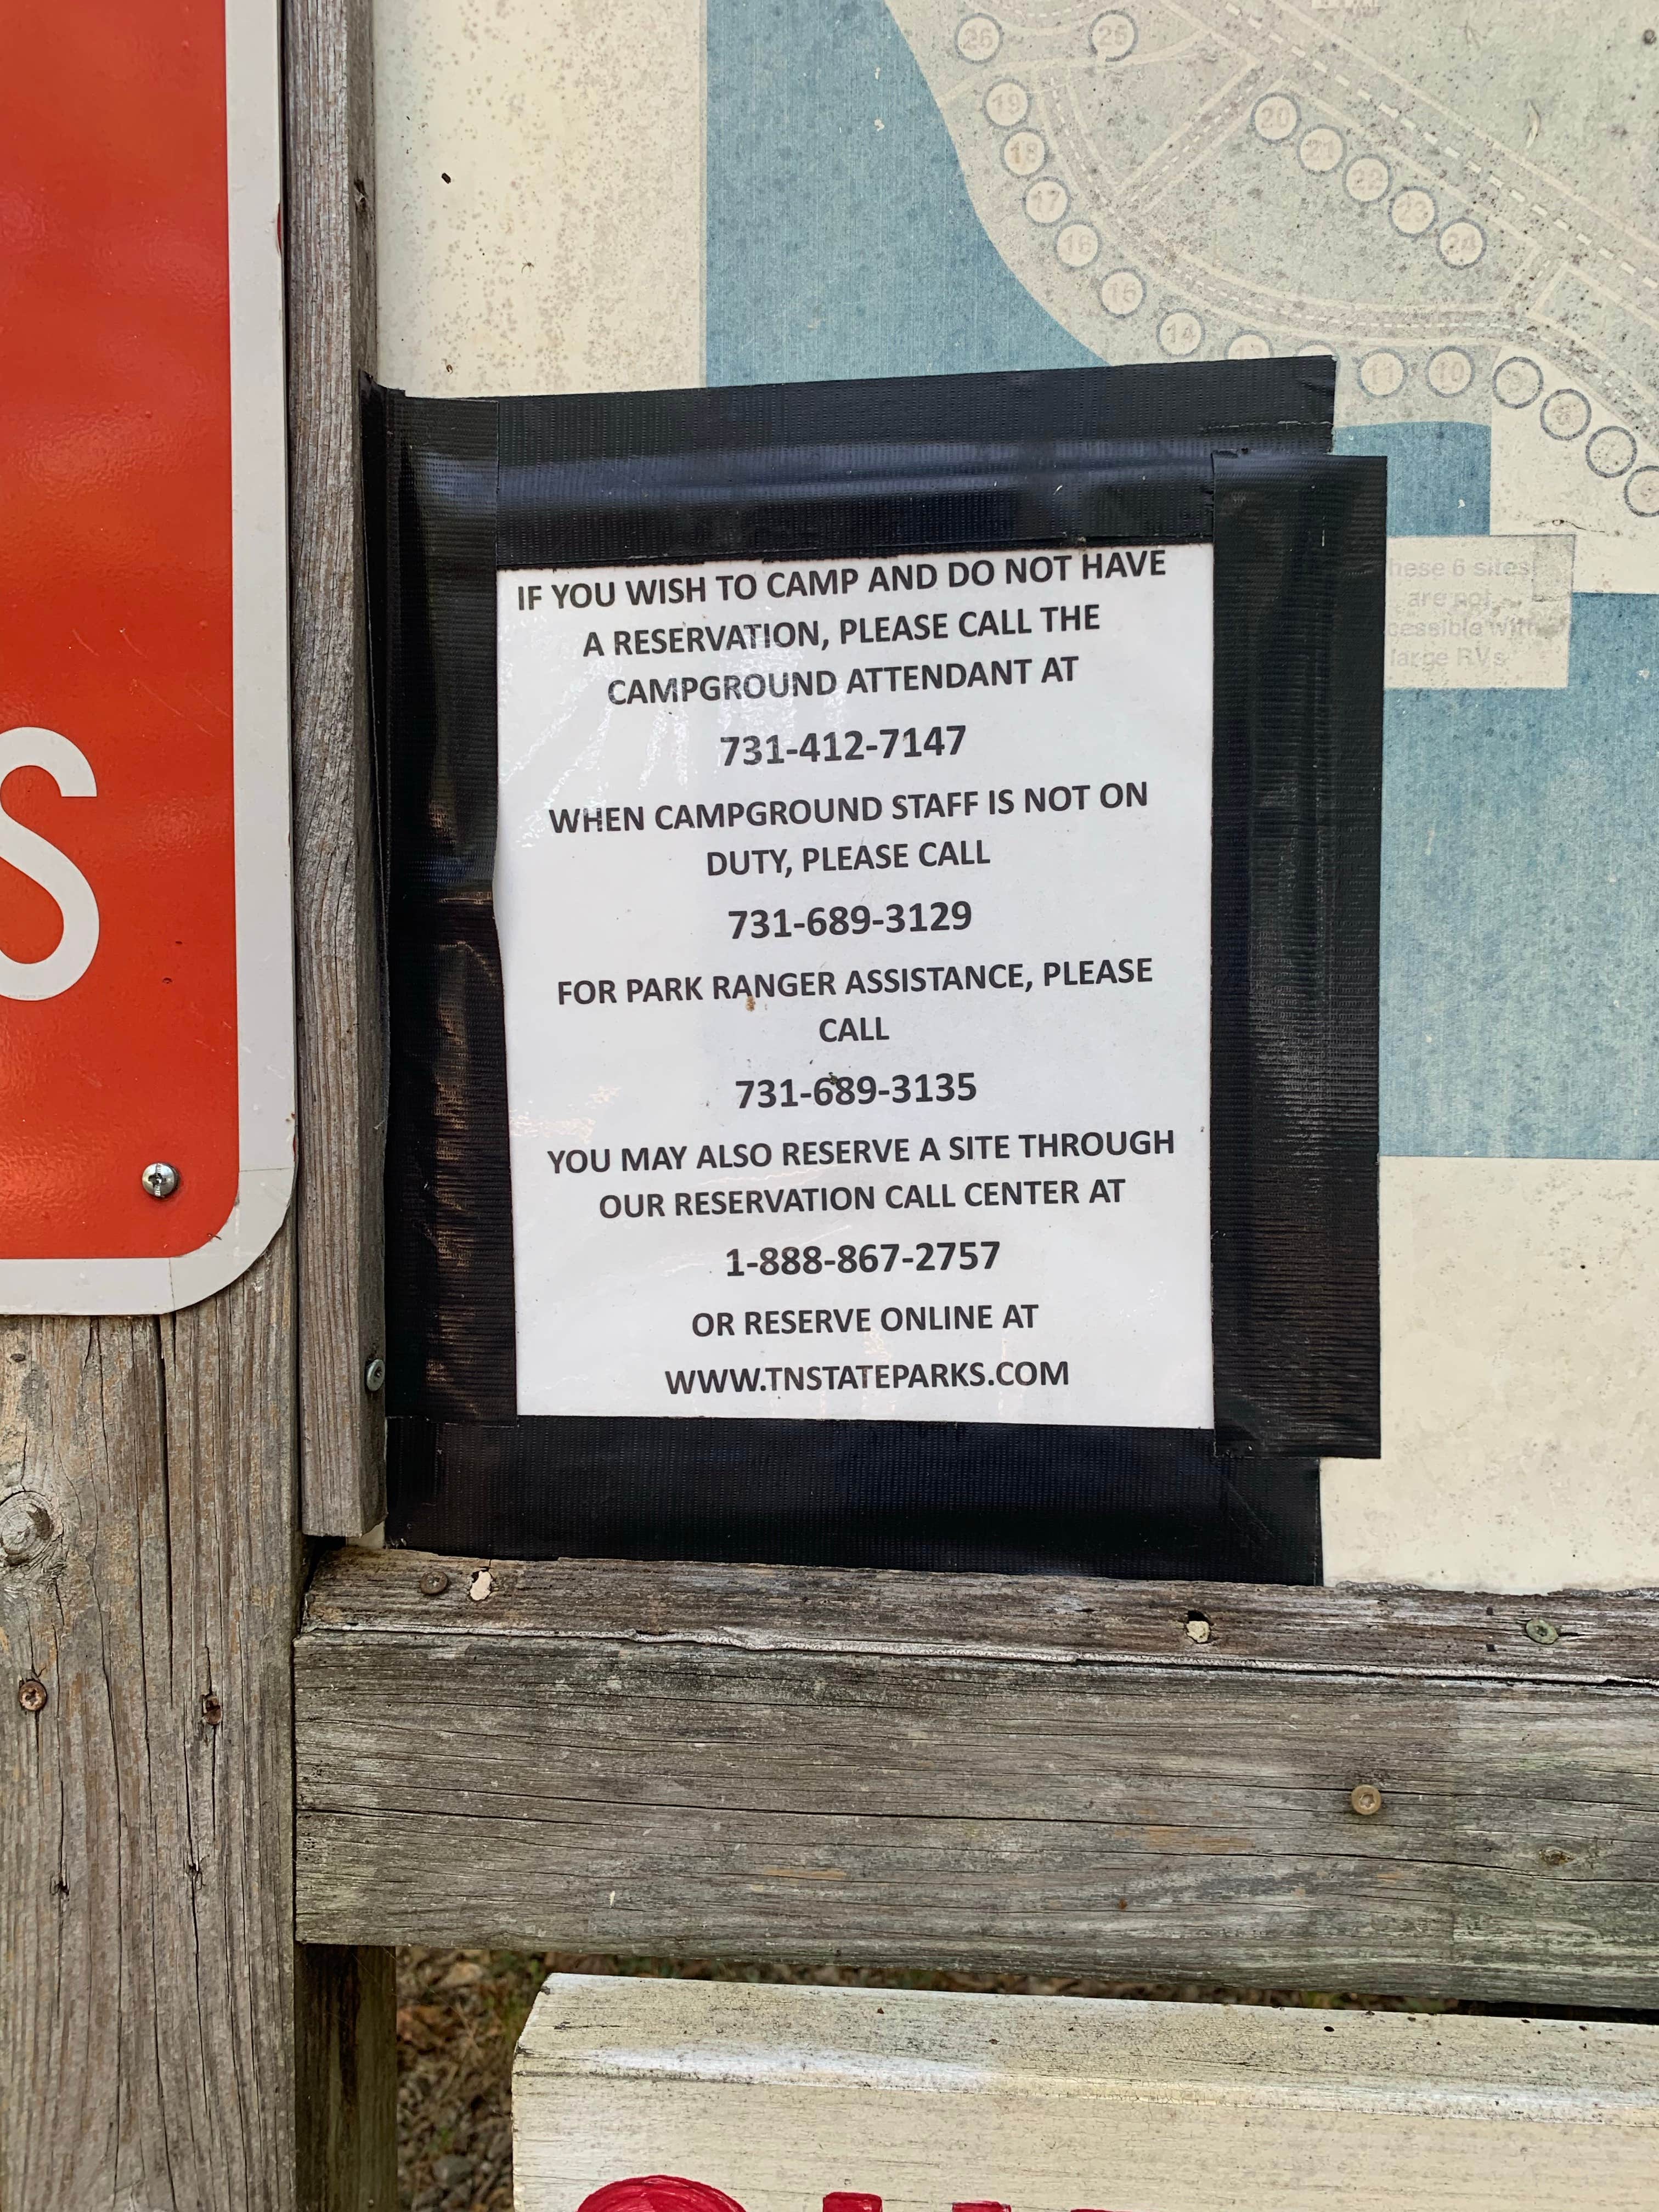 26 25
19
18
17
16
15
14
20
21
22
23
24
11 10
8
S
IF YOU WISH TO CAMP AND DO NOT HAVE
A RESERVATION, PLEASE CALL THE
CAMPGROUND ATTENDANT AT
731-412-7147
WHEN CAMPGROUND STAFF IS NOT ON
DUTY, PLEASE CALL
731-689-3129
FOR PARK RANGER ASSISTANCE, PLEASE
CALL
731-689-3135
YOU MAY ALSO RESERVE A SITE THROUGH
OUR RESERVATION CALL CENTER AT
1-888-867-2757
OR RESERVE ONLINE AT
WWW.TNSTATEPARKS.COM
hese 6 sites
are not
cessible with
large RVs